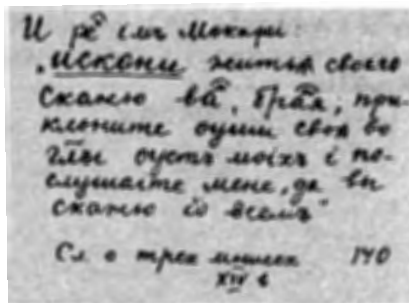 И рѐ імъ Макари:
„искони житья своего
скажю ва̑, браꙗ, при-
клоните оуши своя во
глы̃ оустъ моіхъ і по-
слушаіте мене, да вы
скажю ѡ всемъ“
Сл. о трех мнисех 140
XIV в